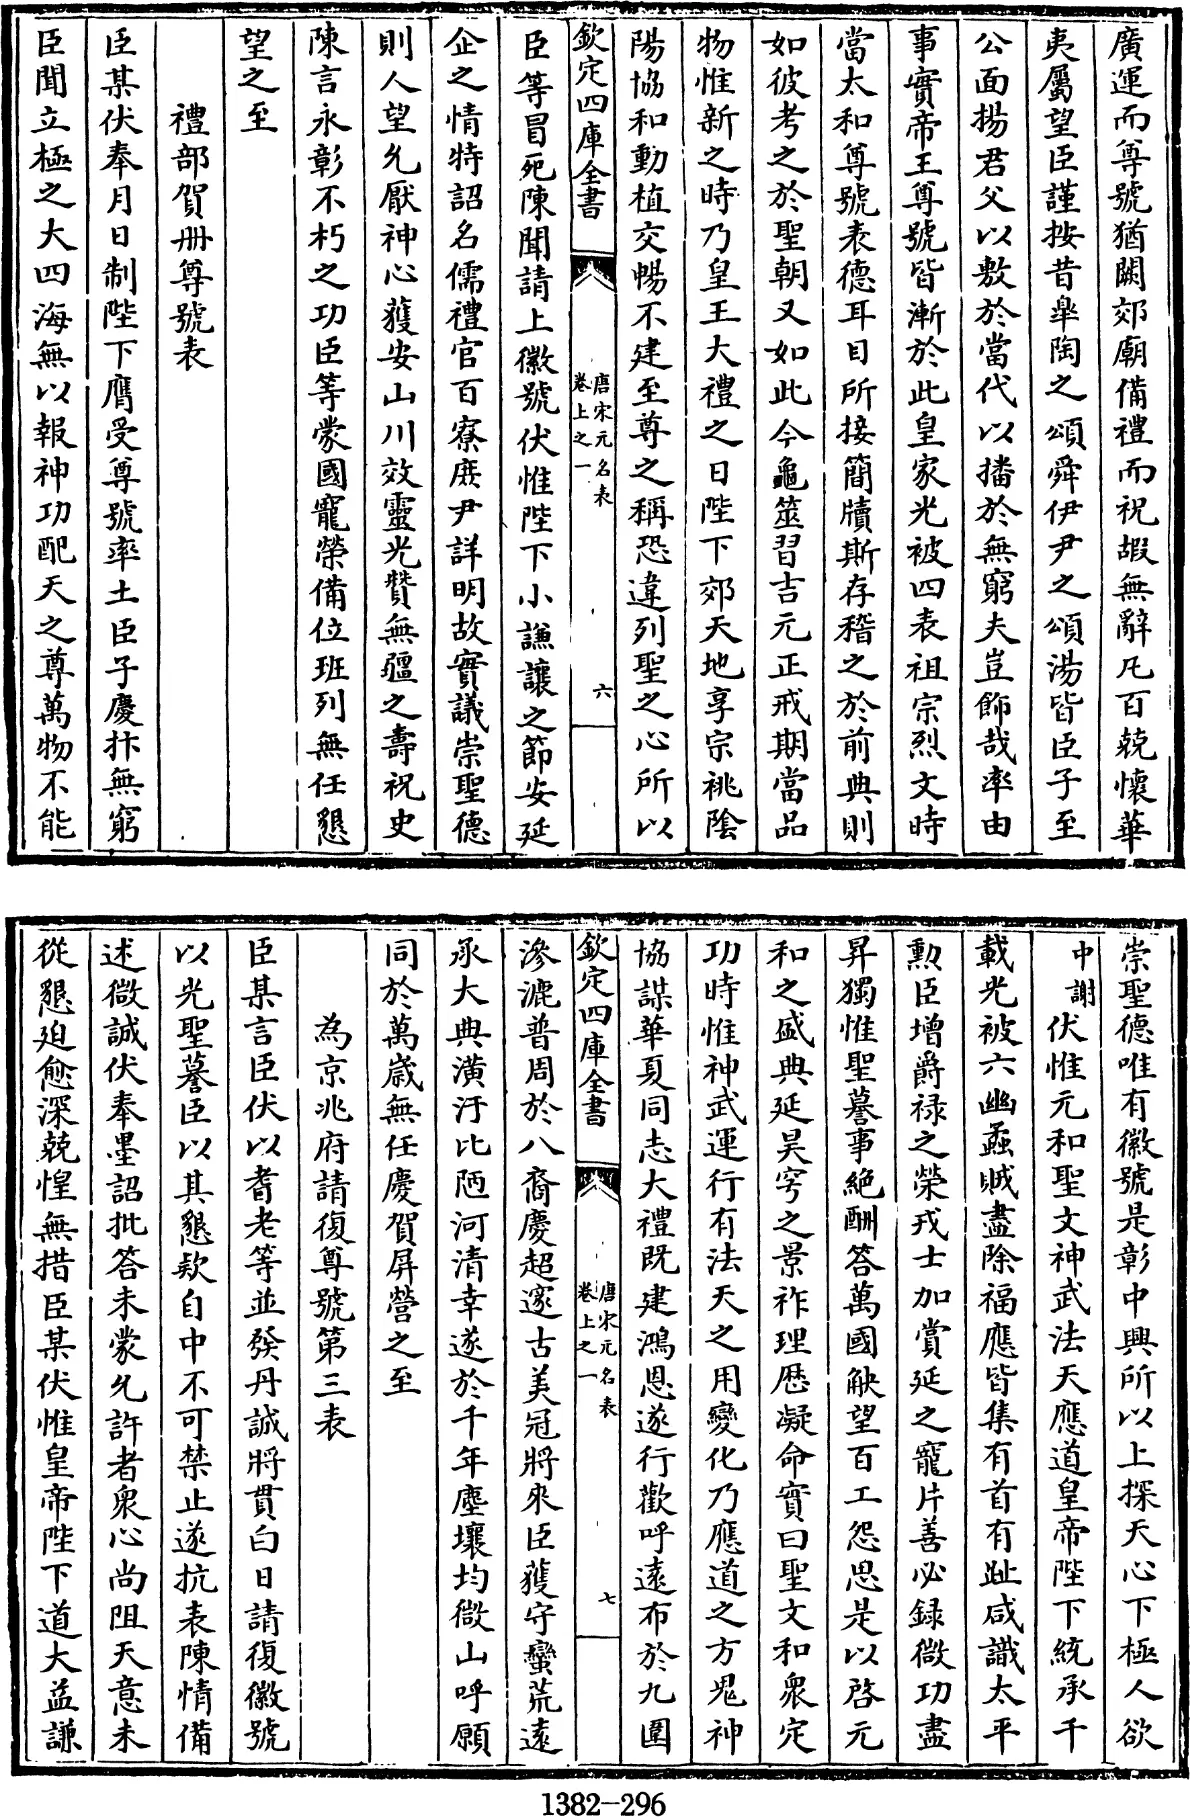 廣運而尊號猶闕郊廟備禮而祝嘏無辭凡百兢懷華
夷屬望臣謹按昔臯陶之頌舜伊尹之頌湯皆臣子至
公面揚君父以敷於當代以播於無窮夫豈飾哉率由
事實帝王尊號皆漸於此皇家光被四表祖宗烈文時
當太和尊號表德耳目所接簡牘斯存稽之於前典則
如彼考之於聖朝又如此今龜筮習吉元正戒期當品
物惟新之時乃皇王大禮之日陛下郊天地享宗祧陰
陽協和動植交暢不建至尊之稱恐違列聖之心所以
欽定四庫全書
唐宋元名表
卷上之一
六
臣等冒死陳聞請上徽號伏惟陛下小謙讓之節安延
企之情特詔名儒禮官百寮庶尹詳明故實議崇聖德
則人望允厭神心獲安山川效靈光贊無疆之壽祝史
陳言永彰不朽之功臣等蒙國寵榮備位班列無任懇
望之至
禮部賀册尊號表
臣某伏奉月日制陛下膺受尊號率土臣子慶抃無窮
臣聞立極之大四海無以報神功配天之尊萬物不能
崇聖德唯有徽號是彰中興所以上探天心下極人欲
中謝伏惟元和聖文神武法天應道皇帝陛下統承千
載光被六幽蟊賊盡除福應皆集有首有趾咸識太平
勲臣增爵禄之榮戎士加賞延之寵片善必録微功盡
昇獨惟聖謩事絶酬答萬國觖望百工怨思是以啓元
和之盛典延昊穹之景祚理歴凝命實曰聖文和衆定
功時惟神武運行有法天之用變化乃應道之方鬼神
協謀華夏同志大禮既建鴻恩遂行歡呼遠布於九圍
欽定四庫全書
唐宋元名表
卷上之一
七
滲漉普周於八裔慶超邃古美冠將來臣獲守蠻荒遠
承大典潢汙比陋河清幸遂於千年塵壤均微山呼願
同於萬歲無任慶賀屏營之至
為京兆府請復尊號第三表
臣某言臣伏以耆老等並發丹誠將貫白日請復徽號
以光聖謩臣以其懇欵自中不可禁止遂抗表陳情備
述微誠伏奉墨詔批答未蒙允許者衆心尚阻天意未
從懇迫愈深兢惶無措臣某伏惟皇帝陛下道大益謙
1382-296